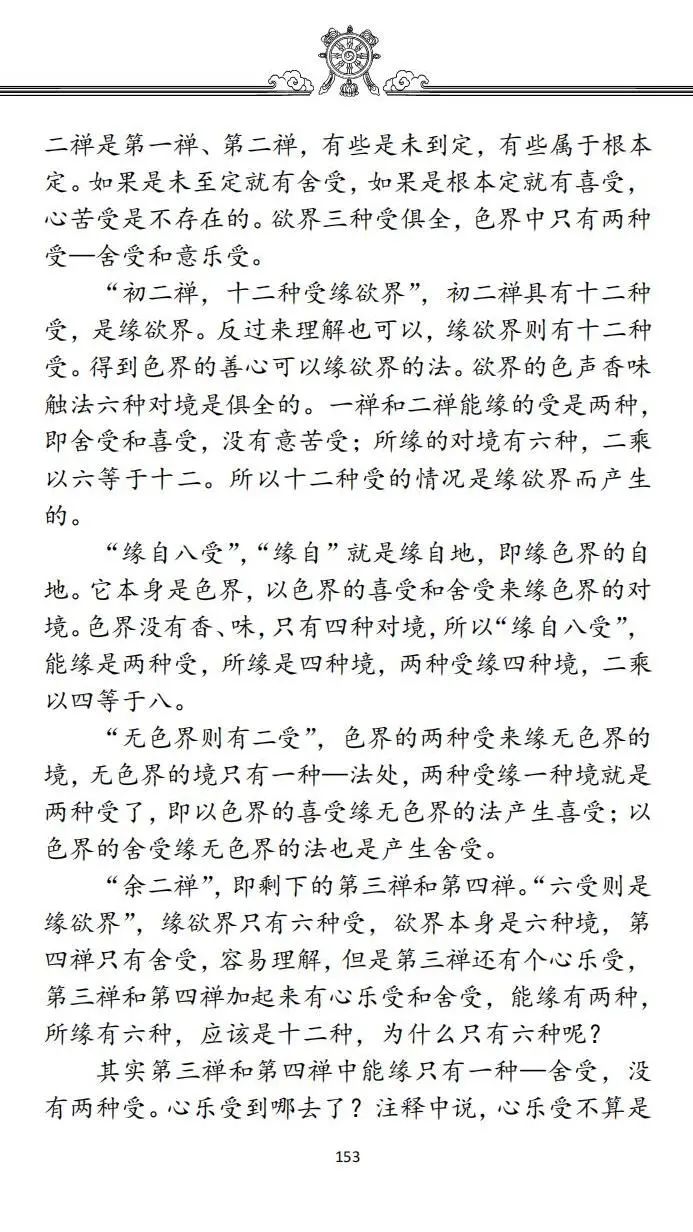 二禅是第一禅、第二禅，有些是未到定，有些属于根本
定。如果是未至定就有舍受，如果是根本定就有喜受，
心苦受是不存在的。欲界三种受俱全，色界中只有两种
受—舍受和意乐受。
“初二禅，十二种受缘欲界”，初二禅具有十二种
受，是缘欲界。反过来理解也可以，缘欲界则有十二种
受。得到色界的善心可以缘欲界的法。欲界的色声香味
触法六种对境是俱全的。一禅和二禅能缘的受是两种，
即舍受和喜受，没有意苦受；所缘的对境有六种，二乘
以六等于十二。所以十二种受的情况是缘欲界而产生
的。
“缘自八受”，“缘自”就是缘自地，即缘色界的自
地。它本身是色界，以色界的喜受和舍受来缘色界的对
境。色界没有香、味，只有四种对境，所以“缘自八受”，
能缘是两种受，所缘是四种境，两种受缘四种境，二乘
以四等于八。
“无色界则有二受”，色界的两种受来缘无色界的
境，无色界的境只有一种—法处，两种受缘一种境就是
两种受了，即以色界的喜受缘无色界的法产生喜受；以
色界的舍受缘无色界的法也是产生舍受。
“余二禅”，即剩下的第三禅和第四禅。“六受则是
缘欲界”，缘欲界只有六种受，欲界本身是六种境，第
四禅只有舍受，容易理解，但是第三禅还有个心乐受，
第三禅和第四禅加起来有心乐受和舍受，能缘有两种，
所缘有六种，应该是十二种，为什么只有六种呢？
其实第三禅和第四禅中能缘只有一种—舍受，没
有两种受。心乐受到哪去了？注释中说，心乐受不算是
153